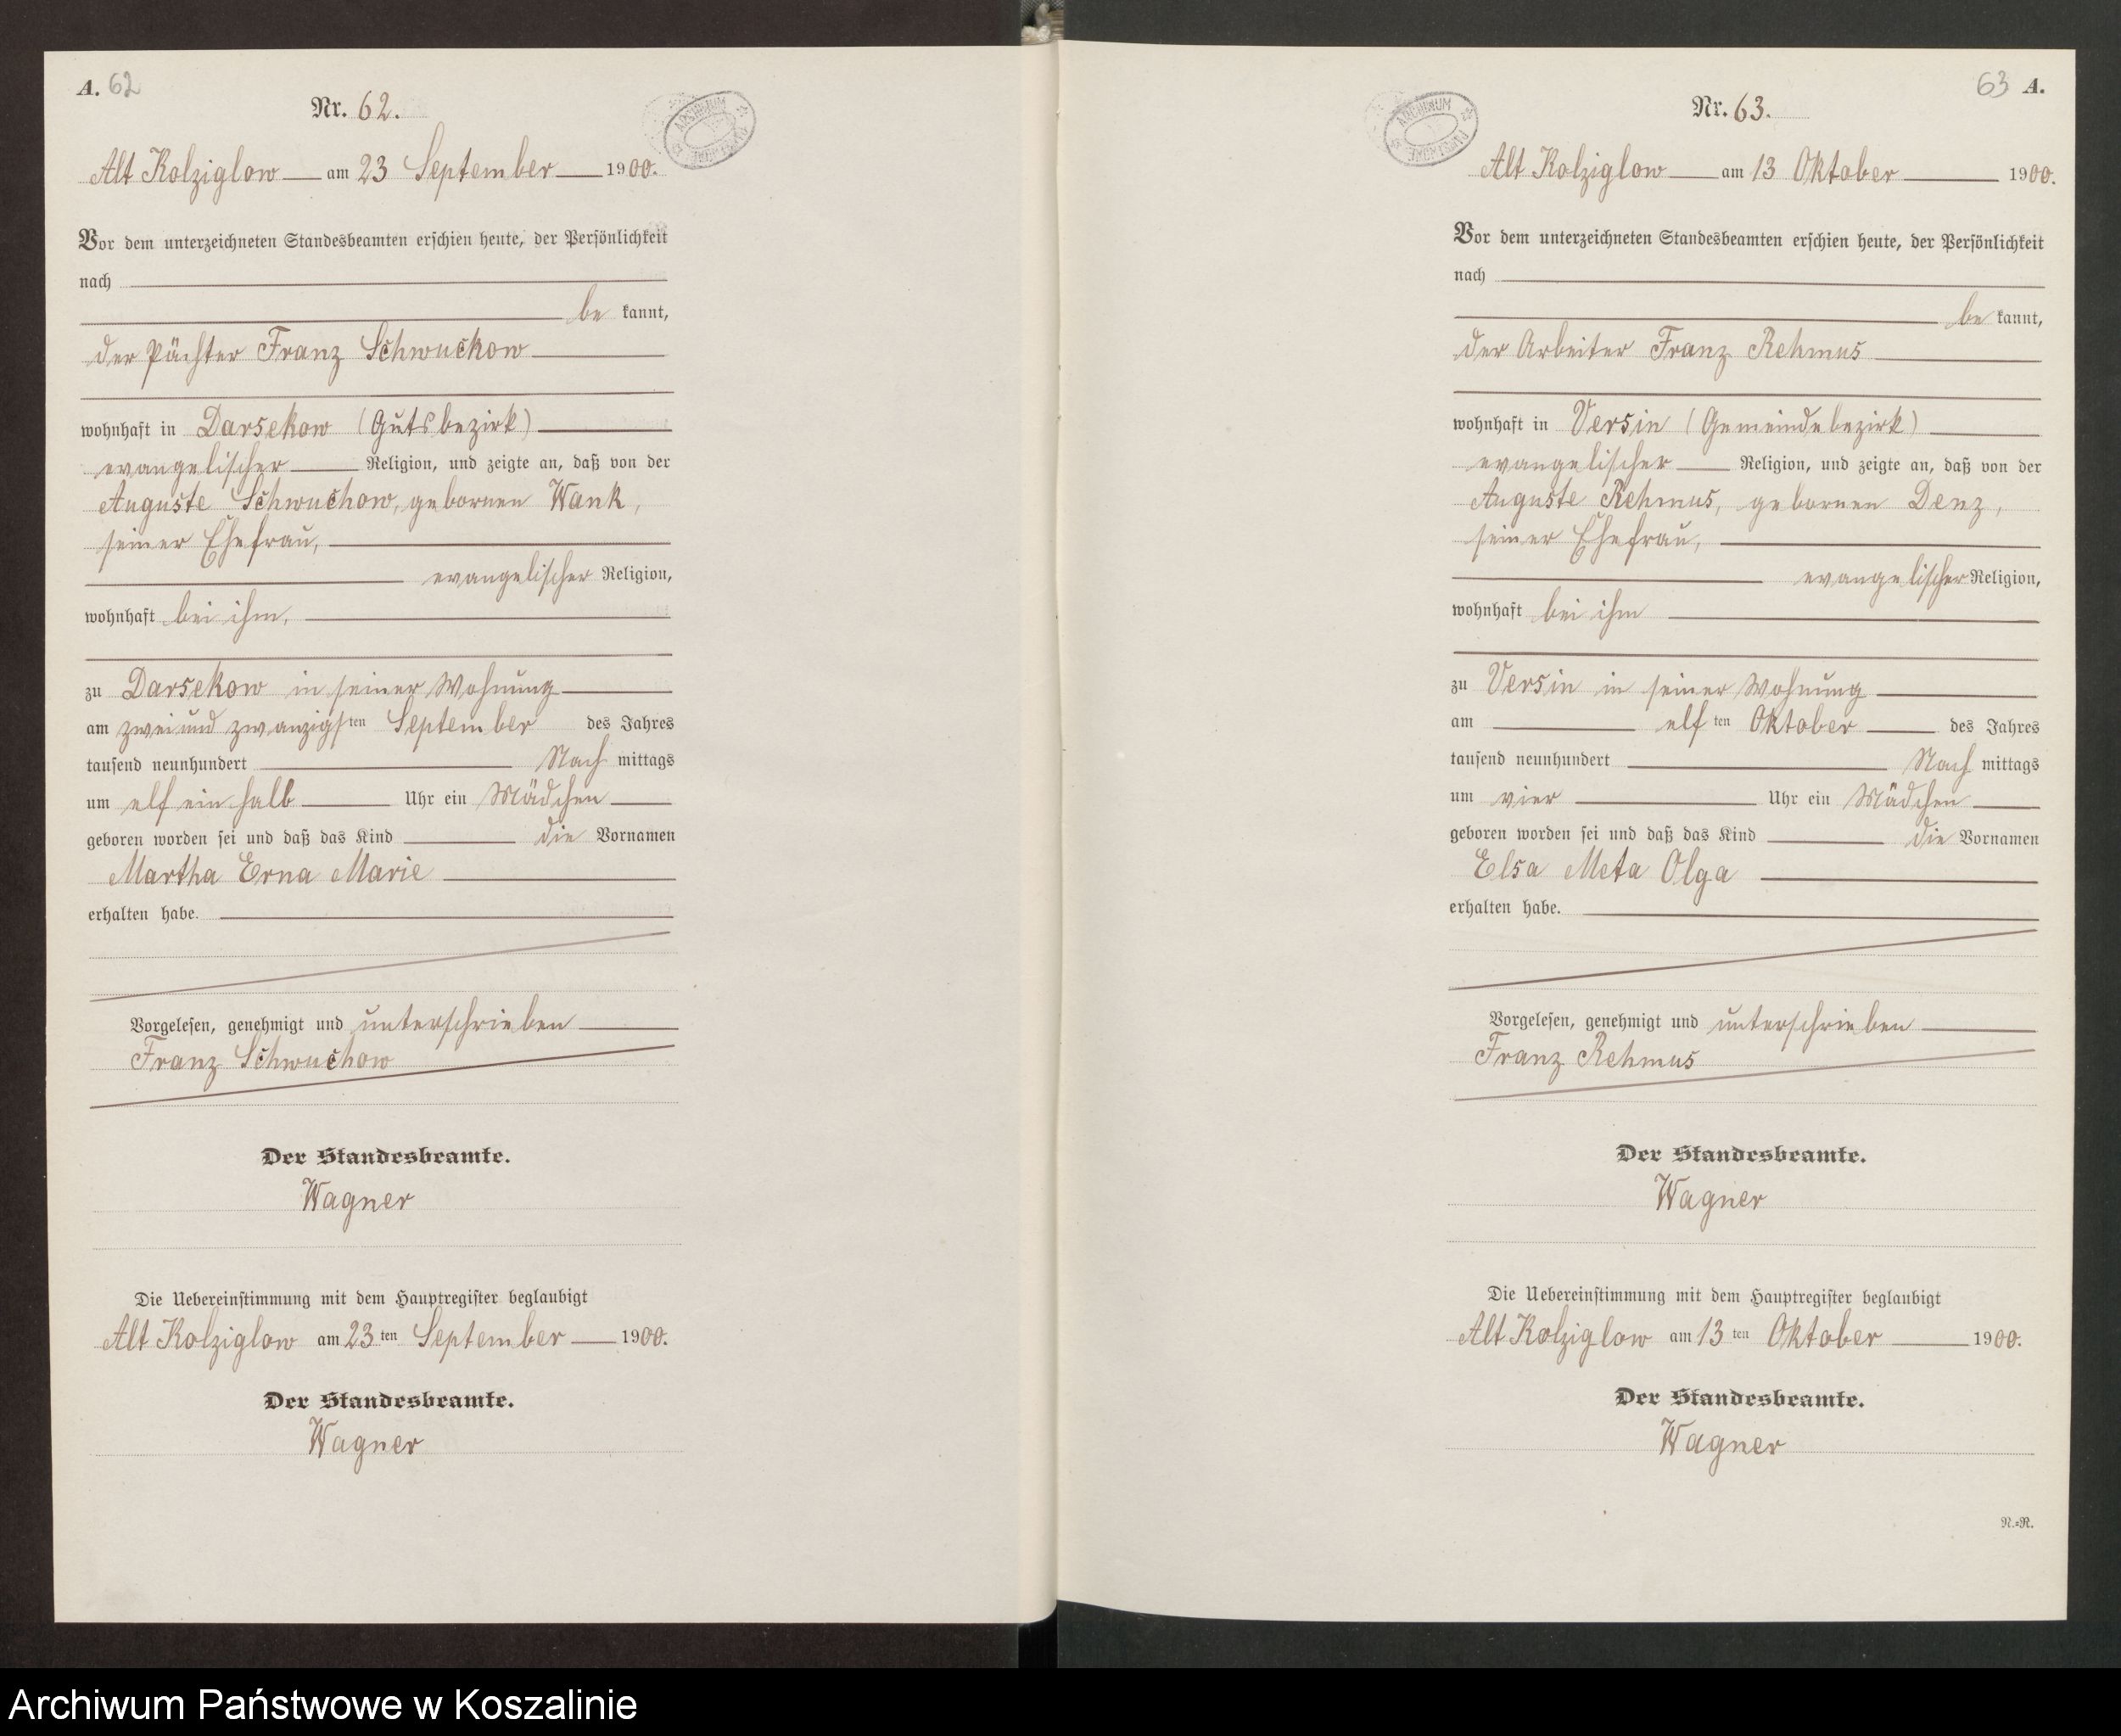 A. 62
Nr. 62.
Alt Kolziglow am 23 September 1900.
Vor dem unterzeichneten Standesbeamten erschien heute, der Persönlichkeit
nach
be kannt,
der Pächter Franz Schwuchow
wohnhaft in Darsekow (Gutsbezirk)
evangelischer Religion, und zeigte an, daß von der
Auguste Schwuchow, gebornen Wank,
seiner Ehefrau,
evangelischer Religion,
wohnhaft bei ihm,
zu Darsekow in seiner Wohnung
am zwei und zwanzigsten September des Jahres
tausend neunhundert Nach mittags
um elf ein halb Uhr ein Mädchen
geboren worden sei und daß das Kind die Vornamen
Martha Erna Marie
erhalten habe.
Vorgelesen, genehmigt und unterschrieben
Franz Schwuchow
Der Standesbeamte.
Wagner
Die Uebereinstimmung mit dem Hauptregister beglaubigt
Alt Kolziglow am 23 ten September 1900.
Der Standesbeamte.
Wagner
63 A.
Nr. 63.
Alt Kolziglow am 13 Oktober 1900.
Vor dem unterzeichneten Standesbeamten erschien heute, der Persönlichkeit
nach
be kannt,
der Arbeiter Franz Rehmus
wohnhaft in Versin (Gemeindebezirk)
evangelischer Religion, und zeigte an, daß von der
Auguste Rehmus, gebornen Denz,
seiner Ehefrau,
evangelischer Religion,
wohnhaft bei ihm
zu Versin in seiner Wohnung
am elf ten Oktober des Jahres
tausend neunhundert Nach mittags
um vier Uhr ein Mädchen
geboren worden sei und daß das Kind die Vornamen
Elsa Meta Olga
erhalten habe.
Vorgelesen, genehmigt und unterschrieben
Franz Rehmus
Der Standesbeamte.
Wagner
Die Uebereinstimmung mit dem Hauptregister beglaubigt
Alt Kolziglow am 13 ten Oktober 1900.
Der Standesbeamte.
Wagner
R.=R.
Archiwum Państwowe w Koszalinie